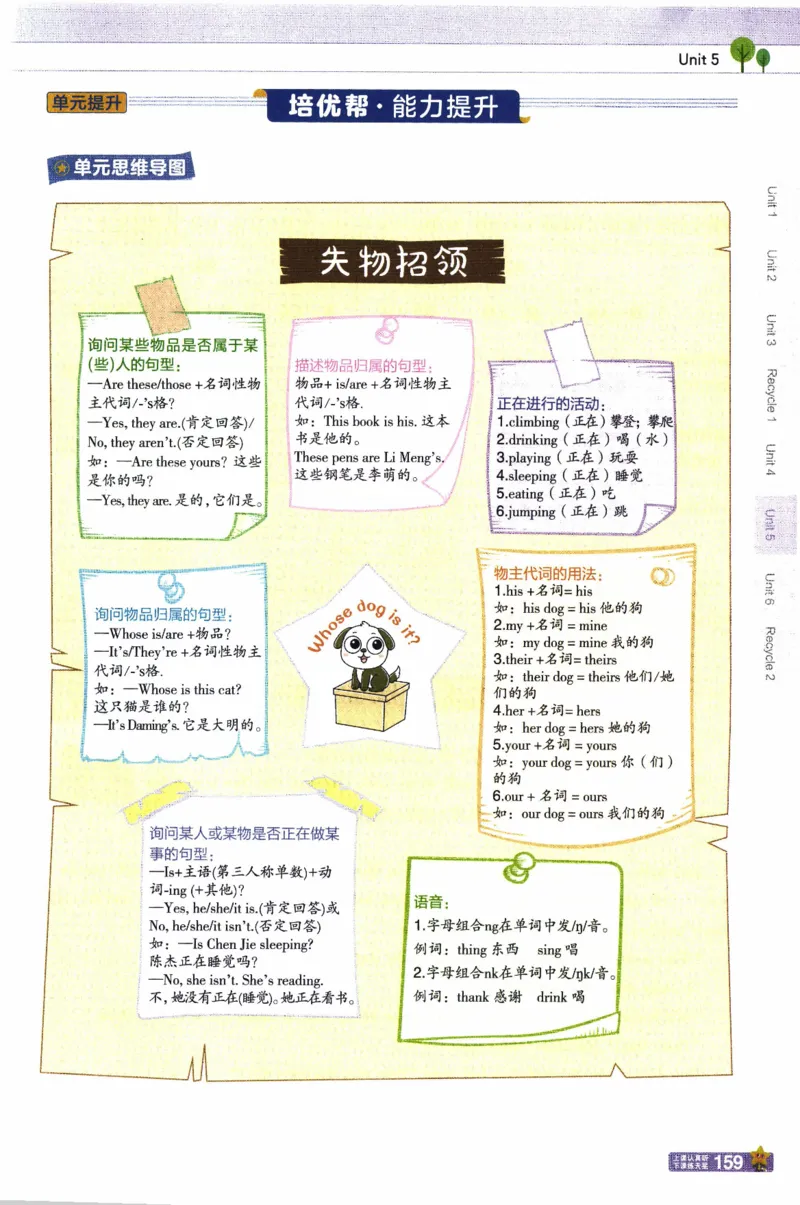 Unit 5
单元提升
培优帮·能力提升
单元思维导图
失物招领
询问某些物品是否属于某
(些)人的句型:
—Are these/those +名词性物
主代词/-'s格?
—Yes, they are.(肯定回答)/
No, they aren't.(否定回答)
如: —Are these yours? 这些
是你的吗?
—Yes, they are. 是的,它们是。
描述物品归属的句型:
物品+ is/are +名词性物主
代词/-'s格.
如: This book is his. 这本
书是他的。
These pens are Li Meng's.
这些钢笔是李萌的。
正在进行的活动:
1.climbing (正在) 攀登; 攀爬
2.drinking (正在) 喝 (水)
3.playing (正在) 玩耍
4.sleeping (正在) 睡觉
5.eating (正在) 吃
6.jumping (正在) 跳
询问物品归属的句型:
—Whose is/are +物品?
—It's/They're +名词性物主
代词/-'s格.
如: —Whose is this cat?
这只猫是谁的?
—It's Daming's. 它是大明的。
Whose dog is it?
物主代词的用法:
1.his +名词= his
如: his dog = his 他的狗
2.my +名词 = mine
如: my dog = mine 我的狗
3.their +名词= theirs
如: their dog = theirs 他们/她
们的狗
4.her +名词= hers
如: her dog = hers 她的狗
5.your +名词 = yours
如: your dog = yours 你 (们)
的狗
6.our + 名词 = ours
如: our dog = ours 我们的狗
询问某人或某物是否正在做某
事的句型:
—Is+主语(第三人称单数)+动
词-ing (+其他)?
—Yes, he/she/it is.(肯定回答)或
No, he/she/it isn't.(否定回答)
如: —Is Chen Jie sleeping?
陈杰正在睡觉吗?
—No, she isn't. She's reading.
不,她没有正在(睡觉)。她正在看书。
语音:
1.字母组合ng在单词中发/ŋ/音。
例词: thing 东西 sing 唱
2.字母组合nk在单词中发/ŋk/音。
例词: thank 感谢 drink 喝
Unit 1
Unit 2
Unit 3
Recycle 1
Unit 4
Unit 5
Unit 6
Recycle 2
上课认真听
下课练天星
159